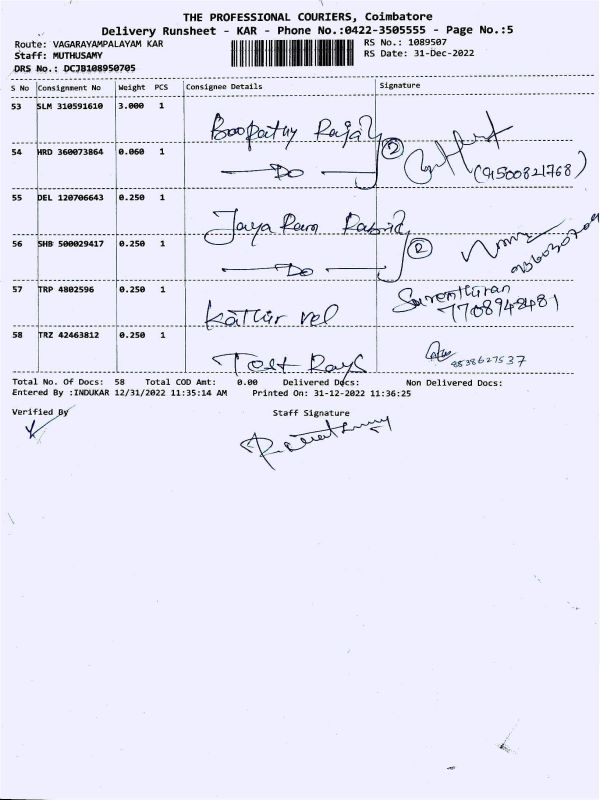 THE PROFESSIONAL COURIERS, Coimbatore
Delivery Runsheet - KAR - Phone No.:0422-3505555 - Page No.:5
Route: VAGARAYAMPALAYAM KAR RS No.: 1089507
Staff: MUTHUSAMY RS Date: 31-Dec-2022
DRS No.: DCJB108950705
S No Consignment No Weight PCS Consignee Details Signature
53 SLM 310591610 3.000 1
Boopathy Raja
54 HRD 360073864 0.060 1
Do (9500821768)
55 DEL 120706643 0.250 1
Jaya Ram
56 SHB 500029417 0.250 1
Do
57 TRP 4802596 0.250 1 Surenthiran
Kathir vel 7708948481
58 TRZ 42463812 0.250 1
Rays 8538627537
Total No. Of Docs: 58 Total COD Amt: 0.00 Delivered Docs: Non Delivered Docs:
Entered By :INDUKAR 12/31/2022 11:35:14 AM Printed On: 31-12-2022 11:36:25
Verified By Staff Signature